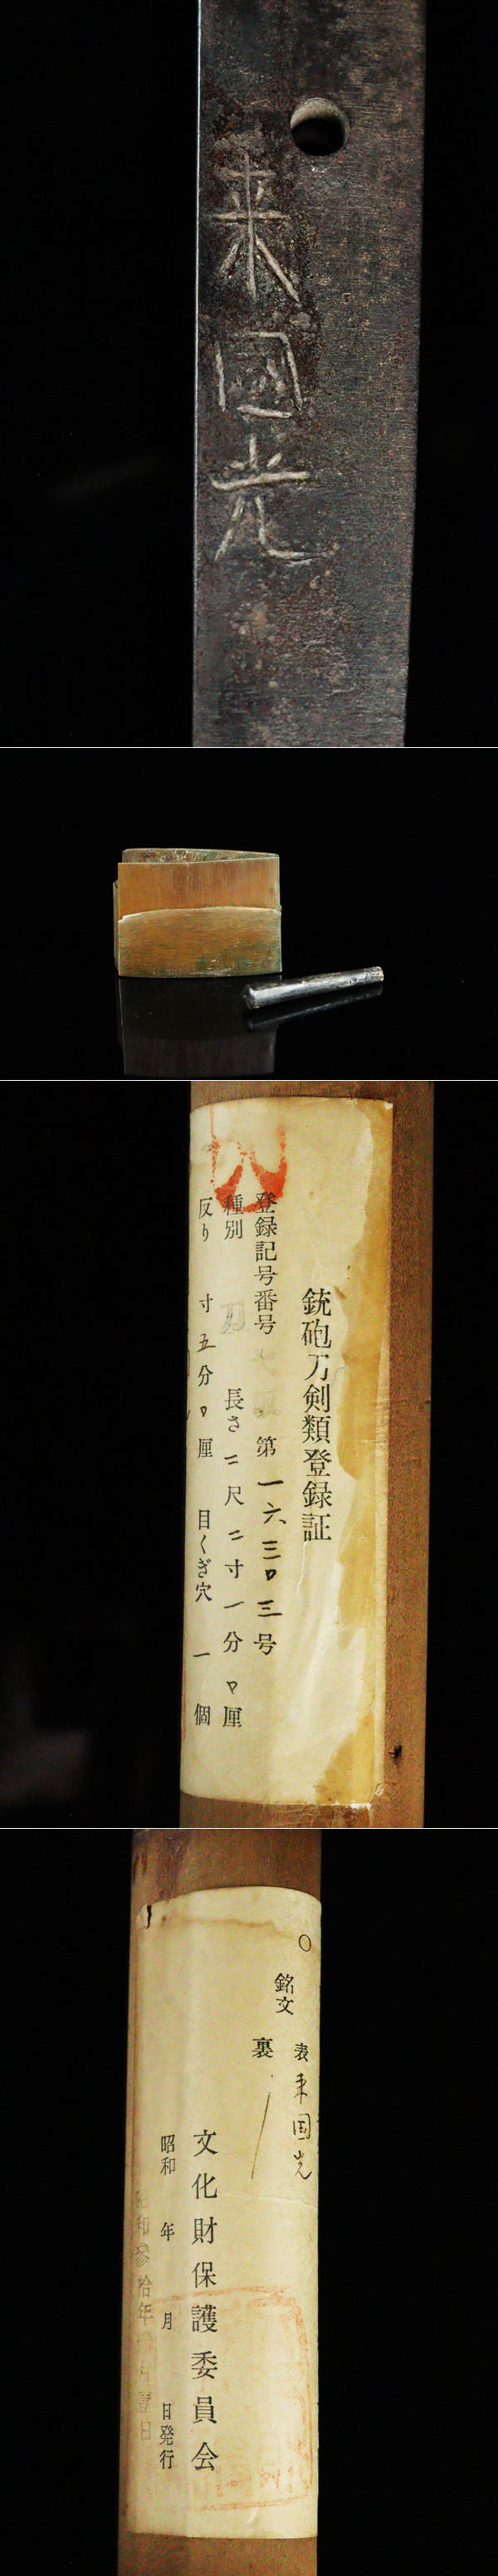 来國光
銃砲刀剣類登録証
登録記号番号 第一六三〇三号
種別 刀 長さ 二尺二寸一分〇厘
反り 寸五分〇厘 目くぎ穴 一個
銘文 表 来国光
裏
文化財保護委員会
昭和 年 月 日発行